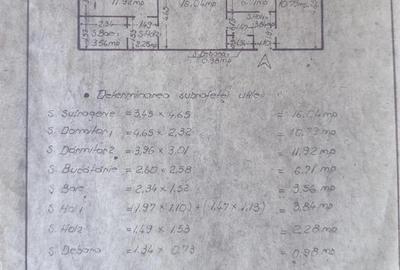 11.92mp 16.04mp 6.71mp 10.73mp
2.34 1.49 4.65
S.Baie S.Hol2
3.56mp 2.28mp
S.Debara
0.98mp
• Determinarea suprafeței utile:
S Sufragerie = 3,45 x 4.65 = 16.04 mp
S Dormitor1 = 4.65 x 2,32 = 10.73 mp
S Dormitor2 = 3,96 x 3,01 = 11,92 mp
S Bucătărie = 2,60 x 2,58 = 6.71 mp
S Baie = 2,34 x 1,52 = 3,56 mp
S Hol1 = (1,97 x 1,10) + (1.47 x 1.13) = 3,84 mp
S Hol2 = 1,49 x 1,53 = 2,28 mp
S Debara = 1.34 x 0,73 = 0,98 mp